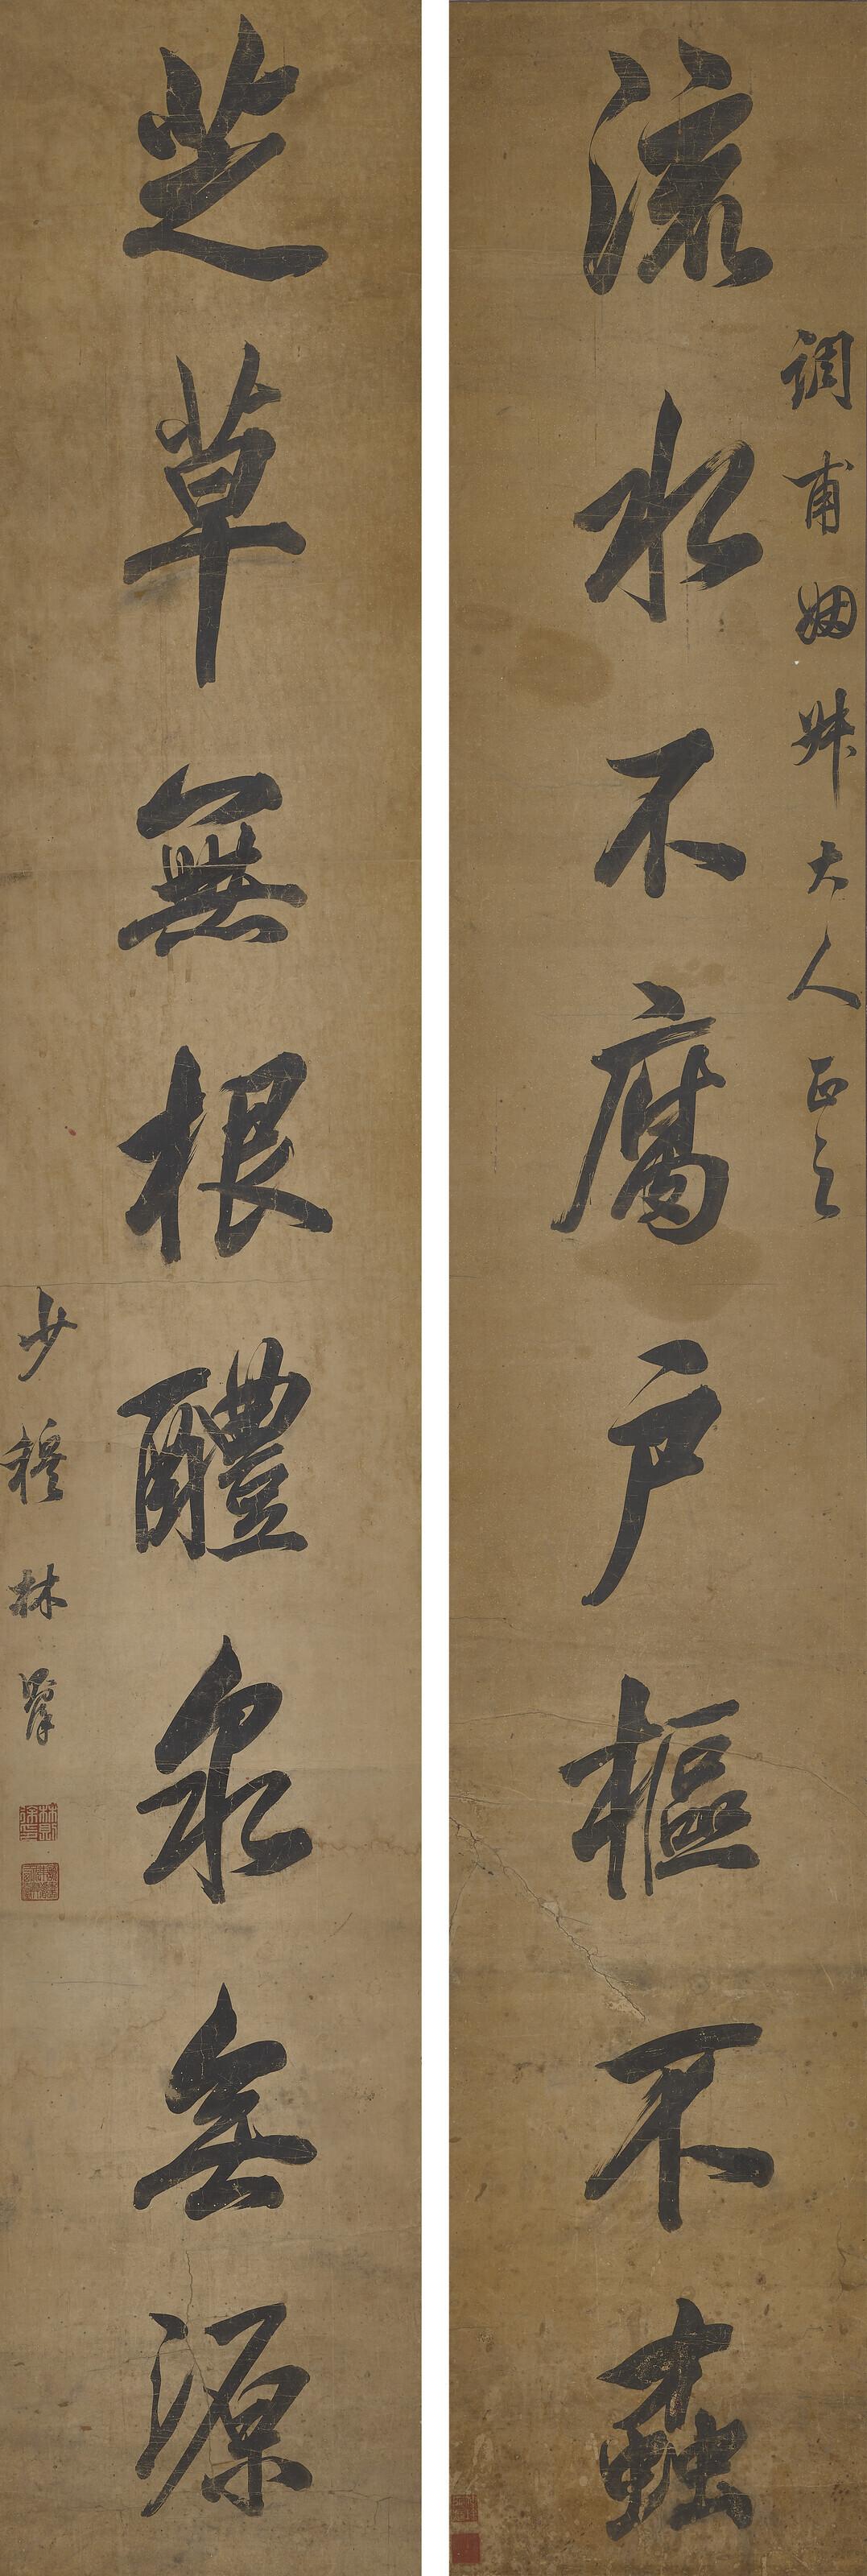 調甫姻姊大人正之
流水不腐戶樞不蠹
芝草無根醴泉無源
少穆林
林則徐印